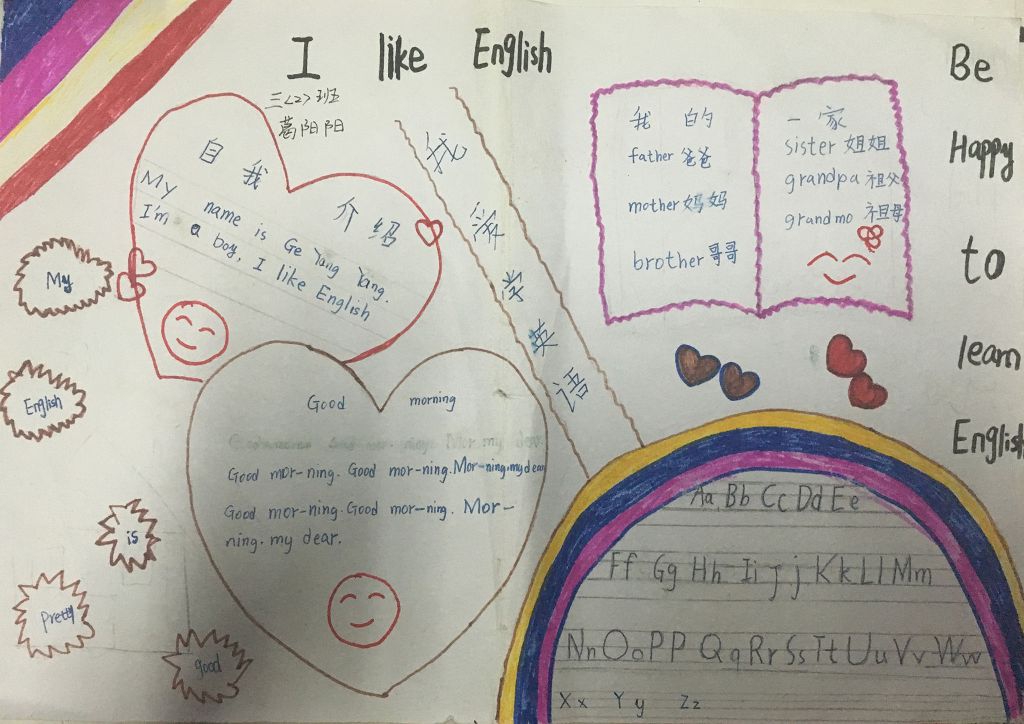 I like English
三<2>班
葛阳阳
自我介绍
My name is Ge Yang Yang.
I'm a boy, I like English
我爱学英语
我的一家
father 爸爸
mother 妈妈
brother 哥哥
sister 姐姐
grandpa 祖父
grandmo 祖母
Be
Happy
to
learn
English
My
English
is
Pretty
good
Good morning
Good mor-ning. Good mor-ning. Mor-ning. my dear
Good mor-ning. Good mor-ning. Mor-
ning. my dear.
Aa Bb Cc Dd Ee
Ff Gg Hh Ii Jj Kk Ll Mm
Nn Oo PP Qq Rr Ss Tt Uu Vv Ww
Xx Yy Zz